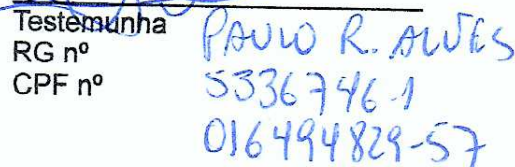 Testemunha PAULO R. ALVES
RG nº 5336746-1
CPF nº 016494829-57